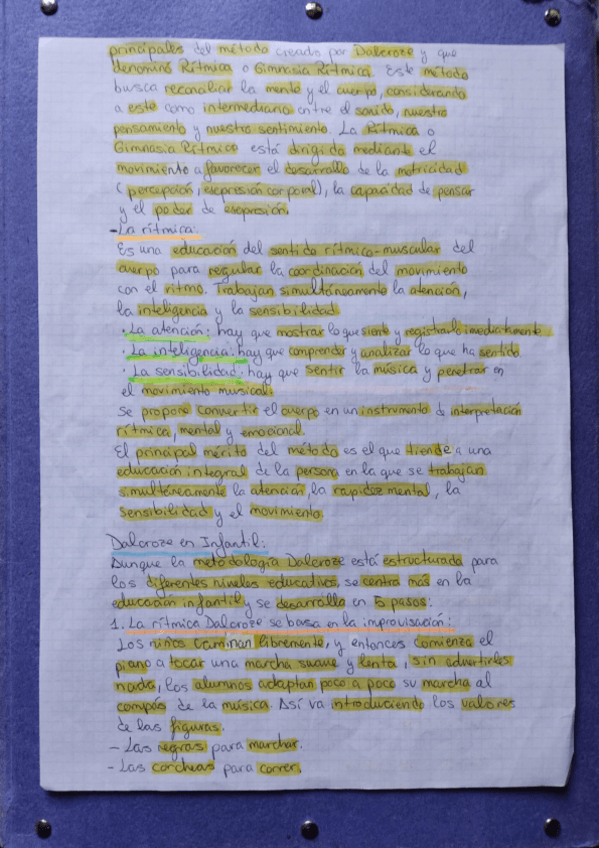 principales del método creado por Dalcroze y que
denominó Rítmica o Gimnasia Rítmica. Este método
busca reconciliar la mente y el cuerpo, considerando
a este como intermediario entre el sonido, nuestro
pensamiento y nuestro sentimiento. La Rítmica o
Gimnasia Rítmica está dirigida mediante el
movimiento a favorecer el desarrollo de la motricidad
(percepción, expresión corporal), la capacidad de pensar
y el poder de expresión.
- La rítmica:
Es una educación del sentido rítmico-muscular del
cuerpo para regular la coordinación del movimiento
con el ritmo. Trabajan simultáneamente la atención,
la inteligencia y la sensibilidad
· La atención: hay que mostrar lo que siente y registrarlo imediatamente
· La inteligencia: hay que comprender y analizar lo que ha sentido.
· La sensibilidad: hay que sentir la música y penetrar en
el movimiento musical.
Se propone convertir el cuerpo en un instrumento de interpretación
rítmica, mental y emocional.
El principal mérito del método es el que tiende a una
educación integral de la persona en la que se trabajan
simultáneamente la atención, la rapidez mental, la
sensibilidad y el movimiento
Dalcroze en Infantil:
Aunque la metodología Dalcroze está estructurada para
los diferentes niveles educativos, se centra más en la
educación infantil y se desarrolla en 5 pasos:
1. La rítmica Dalcroze se basa en la improvisación:
Los niños caminan libremente, y entonces comienza el
piano a tocar una marcha suave y lenta, sin advertirles
nada, los alumnos adaptan poco a poco su marcha al
compás de la música. Así va introduciendo los valores
de las figuras.
- Las negras para marchar.
- Las corcheas para correr.